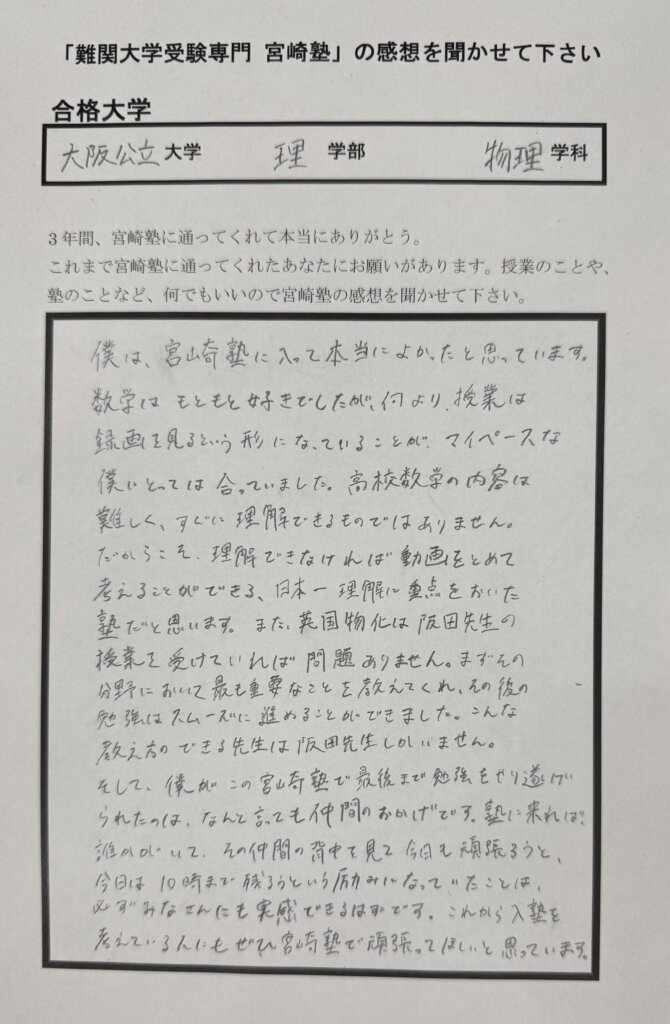 「難関大学受験専門 宮崎塾」の感想を聞かせて下さい
合格大学
大阪公立 大学 理 学部 物理 学科
3年間、宮崎塾に通ってくれて本当にありがとう。
これまで宮崎塾に通ってくれたあなたにお願いがあります。授業のことや、
塾のことなど、何でもいいので宮崎塾の感想を聞かせて下さい。
僕は、宮崎塾に入って本当によかったと思っています。
数学はもともと好きでしたが、何より、授業は
録画を見るという形になっていることが、マイペースな
僕にとっては合っていました。高校数学の内容は
難しく、すぐに理解できるものではありません。
だからこそ、理解できなければ動画をとめて
考えることができる、日本一理解に重点をおいた
塾だと思います。また、英国物化は阪田先生の
授業を受けていれば問題ありません。まずその
分野において最も重要なことを教えてくれ、その後の
勉強はスムーズに進めることができました。こんな
教え方のできる先生は阪田先生しかいません。
そして、僕がこの宮崎塾で最後まで勉強をやり遂げ
られたのは、なんと言っても仲間のおかげです。塾に来れば、
誰かがいて、その仲間の背中を見て今日も頑張ろうと、
今日は10時まで残ろうという励みになっていたことは、
必ずみなさんにも実感できるはずです。これから入塾を
考えている人にもぜひ宮崎塾で頑張ってほしいと思っています。